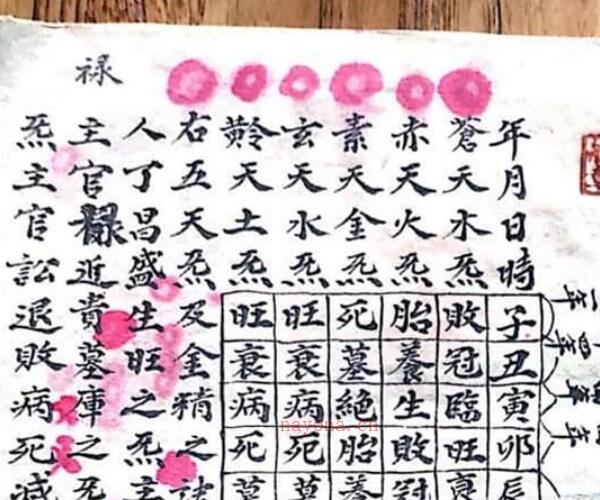 年月日時子丑寅卯辰
蒼天木炁敗冠臨旺衰
赤天火炁胎養生敗冠
素天金炁死墓絕胎養
玄天水炁旺衰病死墓
黅天土炁旺衰病死墓
右五天炁及金精之訣
人丁昌盛生旺之炁主
禄
主官祿近貴墓庫之死
炁主官訟退敗病死滅
nayona.cn